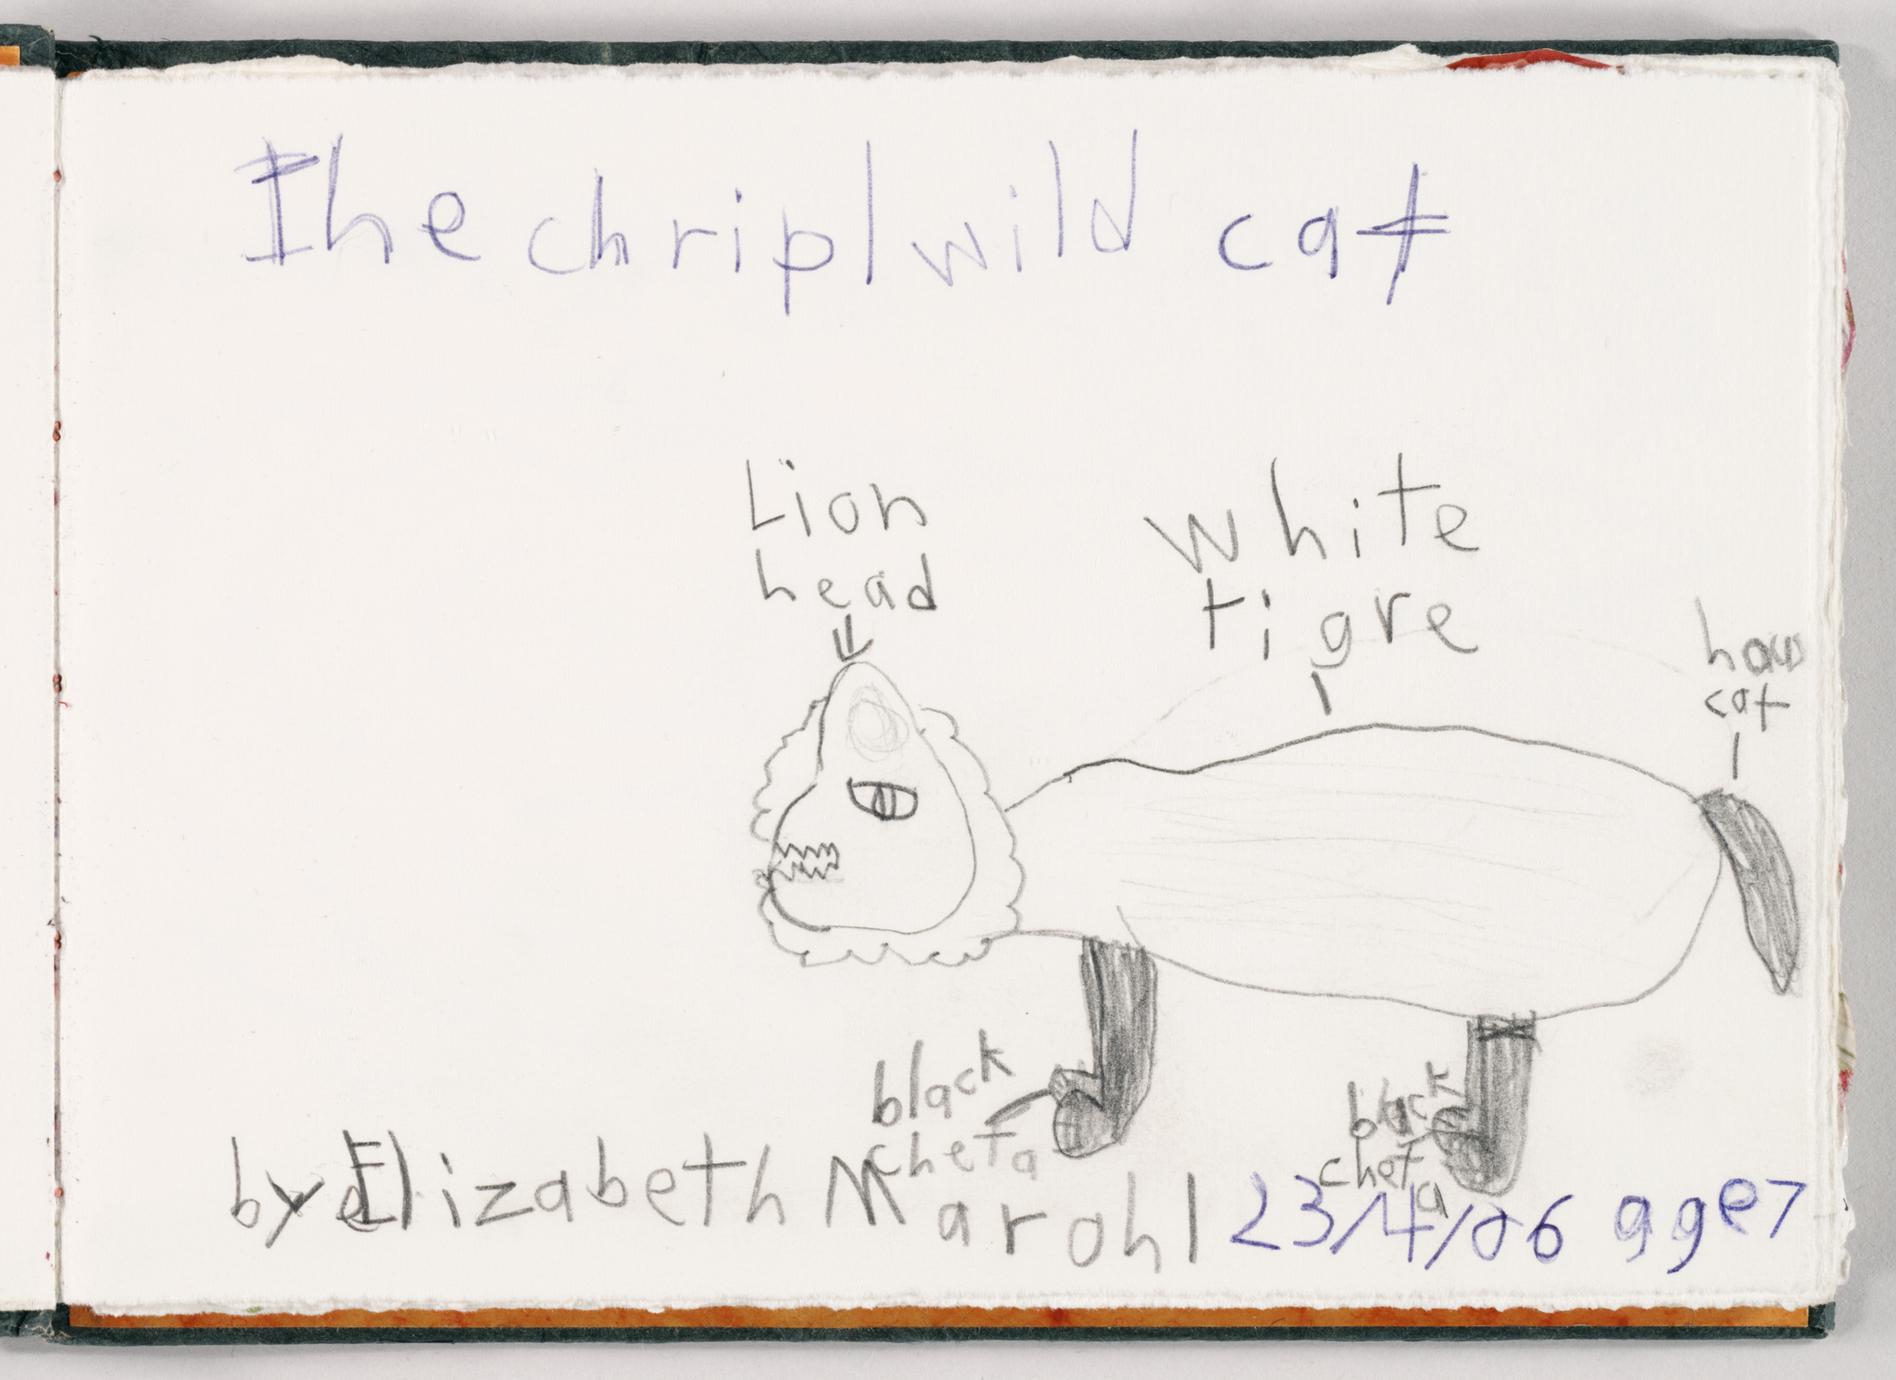 The chripl wild cat
Lion
head
white
tigre
hous
cat
black
cheta
black
cheta
by Elizabeth Marohl 23/4/06 agge7